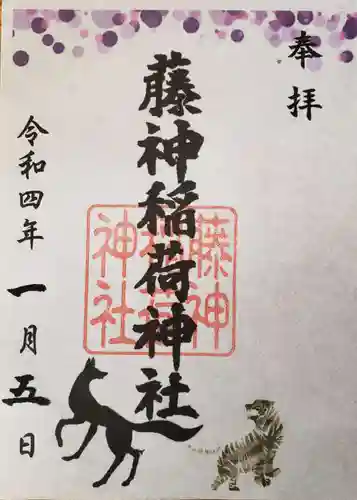 奉拝
藤神稲荷神社
藤神
稲荷
神社
令和四年一月五日